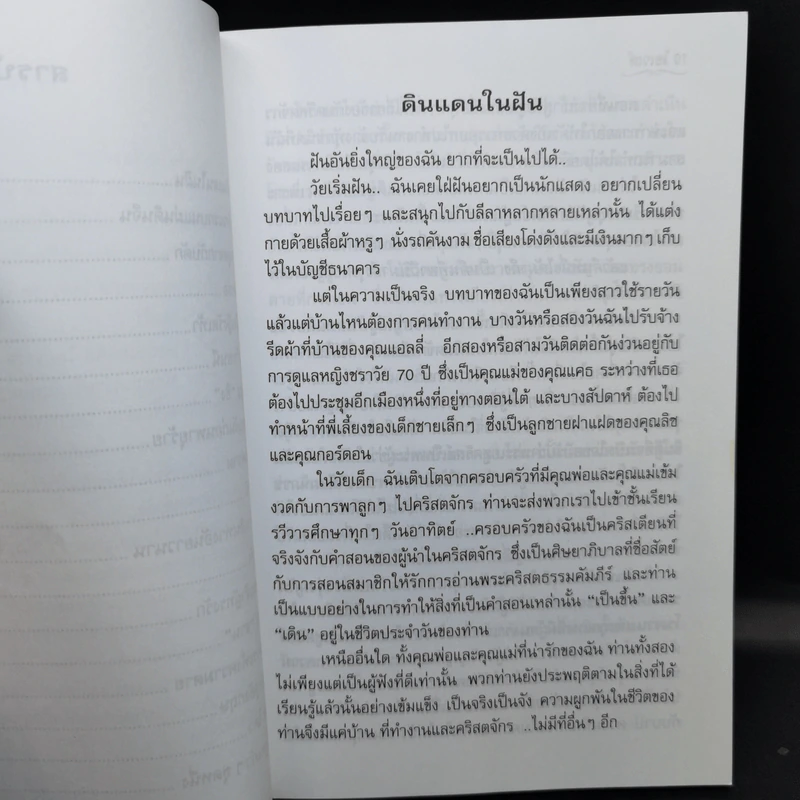 ดินแดนในฝัน
ฝันอันยิ่งใหญ่ของฉัน ยากที่จะเป็นไปได้..
วัยเริ่มฝัน.. ฉันเคยใฝ่ฝันอยากเป็นนักแสดง อยากเปลี่ยน
บทบาทไปเรื่อยๆ และสนุกไปกับลีลาหลากหลายเหล่านั้น ได้แต่ง
กายด้วยเสื้อผ้าหรูๆ นั่งรถคันงาม ชื่อเสียงโด่งดังและมีเงินมากๆ เก็บ
ไว้ในบัญชีธนาคาร
แต่ในความเป็นจริง บทบาทของฉันเป็นเพียงสาวใช้รายวัน
แล้วแต่บ้านไหนต้องการคนทำงาน บางวันหรือสองวันฉันไปรับจ้าง
รีดผ้าที่บ้านของคุณแอลลี่ อีกสองหรือสามวันติดต่อกันง่วนอยู่กับ
การดูแลหญิงชราวัย 70 ปี ซึ่งเป็นคุณแม่ของคุณแคธ ระหว่างที่เธอ
ต้องไปประชุมอีกเมืองหนึ่งที่อยู่ทางตอนใต้ และบางสัปดาห์ ต้องไป
ทำหน้าที่พี่เลี้ยงของเด็กชายเล็กๆ ซึ่งเป็นลูกชายฝาแฝดของคุณลิซ
และคุณกอร์ดอน
ในวัยเด็ก ฉันเติบโตจากครอบครัวที่มีคุณพ่อและคุณแม่เข้ม
งวดกับการพาลูกๆ ไปคริสตจักร ท่านจะส่งพวกเราไปเข้าชั้นเรียน
รวีวารศึกษาทุกๆ วันอาทิตย์ ..ครอบครัวของฉันเป็นคริสเตียนที่
จริงจังกับคำสอนของผู้นำในคริสตจักร ซึ่งเป็นศิษยาภิบาลที่ซื่อสัตย์
กับการสอนสมาชิกให้รักการอ่านพระคริสตธรรมคัมภีร์ และท่าน
เป็นแบบอย่างในการทำให้สิ่งที่เป็นคำสอนเหล่านั้น “เป็นขึ้น” และ
“เดิน” อยู่ในชีวิตประจำวันของท่าน
เหนืออื่นใด ทั้งคุณพ่อและคุณแม่ที่น่ารักของฉัน ท่านทั้งสอง
ไม่เพียงแต่เป็นผู้ฟังที่ดีเท่านั้น พวกท่านยังประพฤติตามในสิ่งที่ได้
เรียนรู้แล้วนั้นอย่างเข้มแข็ง เป็นจริงเป็นจัง ความผูกพันในชีวิตของ
ท่านจึงมีแค่บ้าน ที่ทำงานและคริสตจักร ..ไม่มีที่อื่นๆ อีก